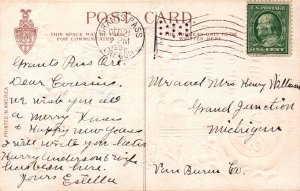 POST CARD
THIS SPACE MAY BE USED
FOR COMMUNICATION
GRANTS PASS
OREGON
U.S. POSTAGE
ONE CENT
PRINTED IN AMERICA
Grants Pass Ore.
Dear Cousins,
We wish you all
a Merry Xmas
& Happy new years
I will write you later
Harry Anderson & wife
has been here.
Yours Estella
Mr and Mrs Henry William
Grand Junction
Michigan
Van Buren Co.